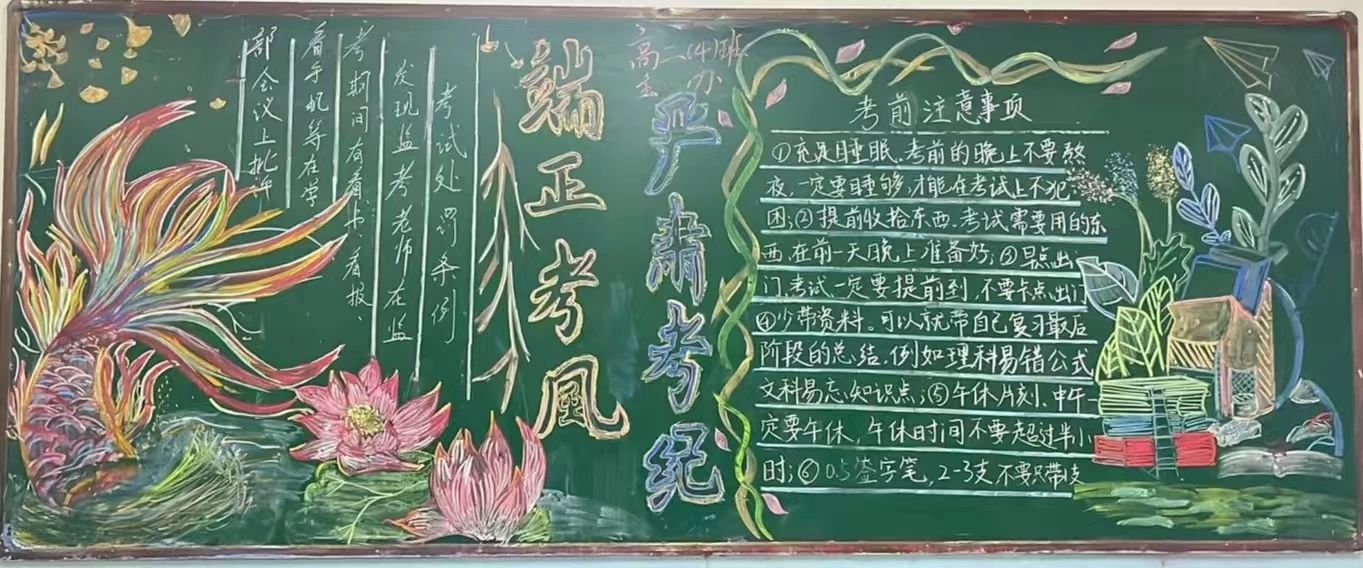 高二(4)班
主办
端正考風
严肃考纪
考试处罚条例
发现监考老师在监
考期间有看书、看报、
看手机等在学
部会议上批评
考前注意事项
①充足睡眠、考前的晚上不要熬
夜,一定要睡够,才能在考试上不犯
困;②提前收拾东西、考试需要用的东
西,在前一天晚上准备好;③早点出
门,考试一定要提前到,不要卡点出门
④少带资料。可以就带自己复习最后
阶段的总结,例如理科易错公式
文科易忘知识点;⑤午休片刻、中午一
定要午休,午休时间不要超过半小
时;⑥0.5签字笔,2-3支不要只带1支